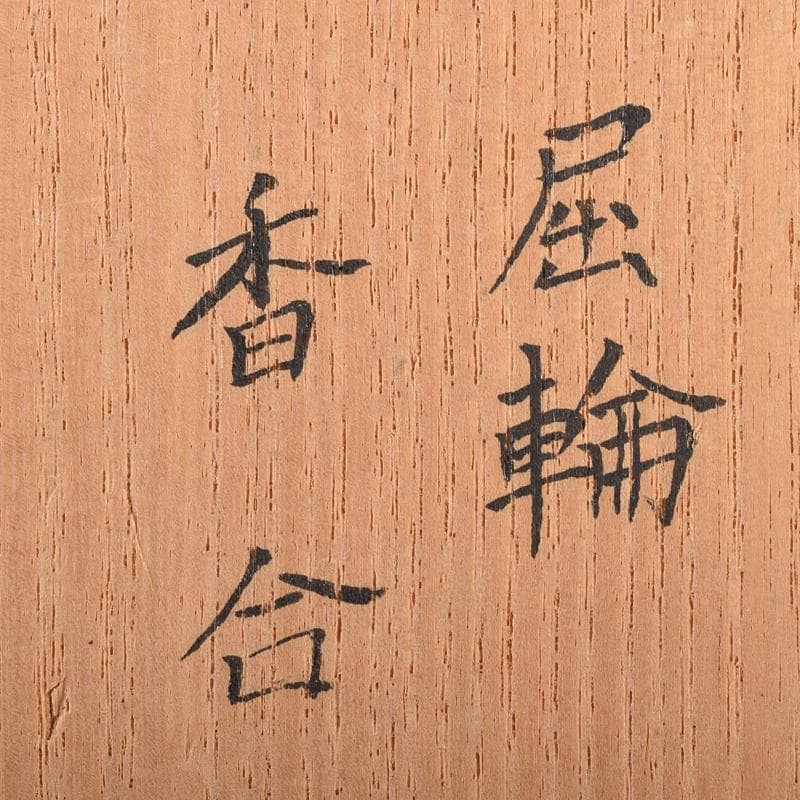 屈輪
香合